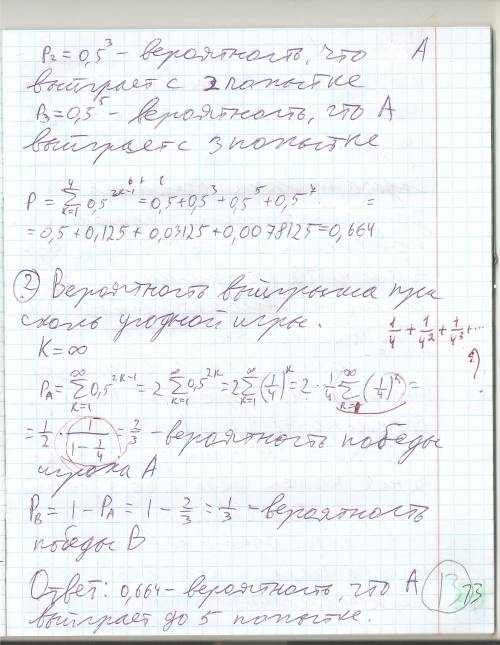 P₂ = 0,5³ – вероятность, что A
выиграет с 2 попытке
P₃ = 0,5⁵ – вероятность, что A
выиграет с 3 попытке
P = ∑ₖ₌₁⁴ 0,5²ᵏ⁻¹ = 0,5 + 0,5³ + 0,5⁵ + 0,5⁷ =
= 0,5 + 0,125 + 0,03125 + 0,0078125 = 0,664
② Вероятность выигрыша при
сколь угодной игры.
1/4 + 1/4² + 1/4³ + ...
K = ∞
?
P_A = ∑ₖ₌₁^∞ 0,5²ᵏ⁻¹ = 2 ∑ₖ₌₁^∞ 0,5²ᵏ = 2 ∑ₖ₌₁^∞ (1/4)ᵏ = 2 · 1/4 ∑^∞ (1/4)ᵏ =
= 1/2 · 1/(1 – 1/4) = 2/3 – вероятность победы
игрока A
P_B = 1 – P_A = 1 – 2/3 = 1/3 – вероятность
победы B
Ответ: 0,664 – вероятность, что A
выиграет до 5 попытке.
13